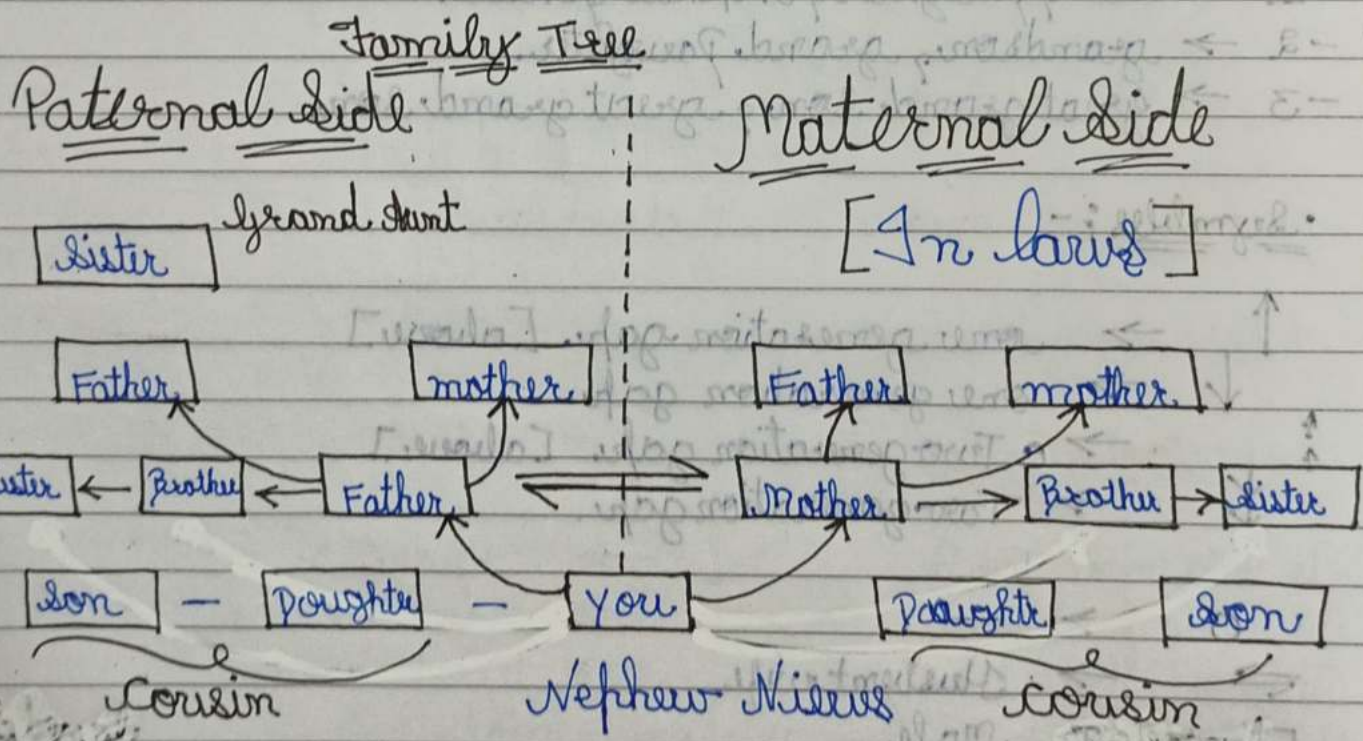 Family Tree
Paternal Side
Maternal Side
Grand Aunt
[In laws]
Sister
Father
mother
Father
mother
Brother
Father
Mother
Brother
Sister
Son - Doughter - you
Daaughtr
Son
Cousin
Nephew Niews
cousin